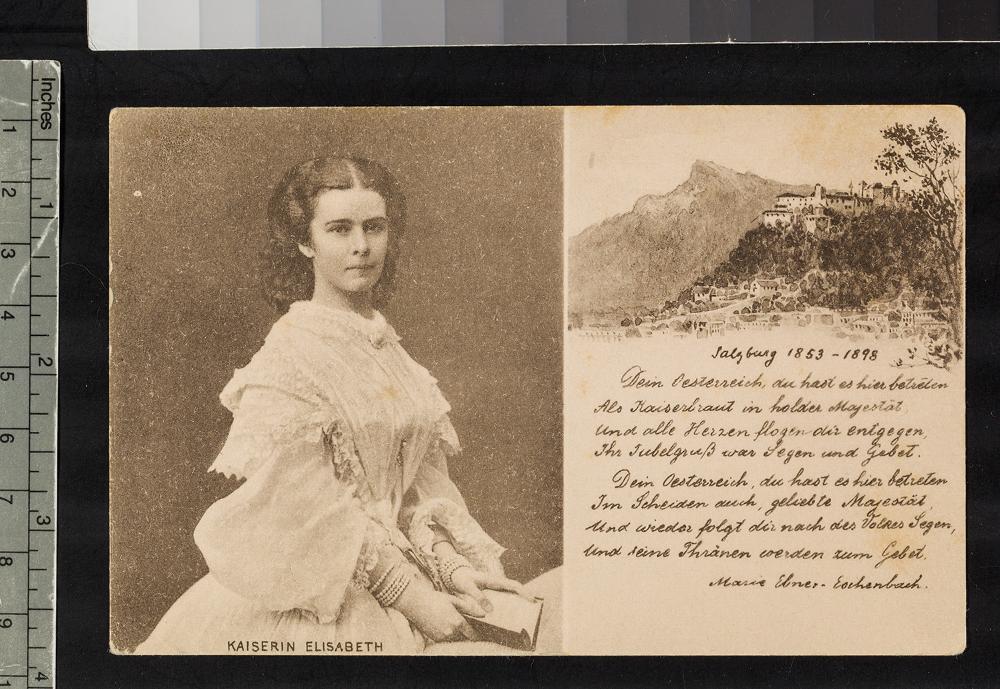 Inches
1
2
3
4
5
6
7
8
9
1
1
2
3
4
KAISERIN ELISABETH
Salzburg 1853 - 1898
Dein Oesterreich, du hast es hier betreten
Als Kaiserbraut in holder Majestät,
Und alle Herzen flogen dir entgegen,
Ihr Jubelgruß war Segen und Gebet.
Dein Oesterreich, du hast es hier betreten
Im Scheiden auch, geliebte Majestät,
Und wieder folgt dir nach des Volkes Segen,
Und seine Thränen werden zum Gebet.
Marie Ebner-Eschenbach.